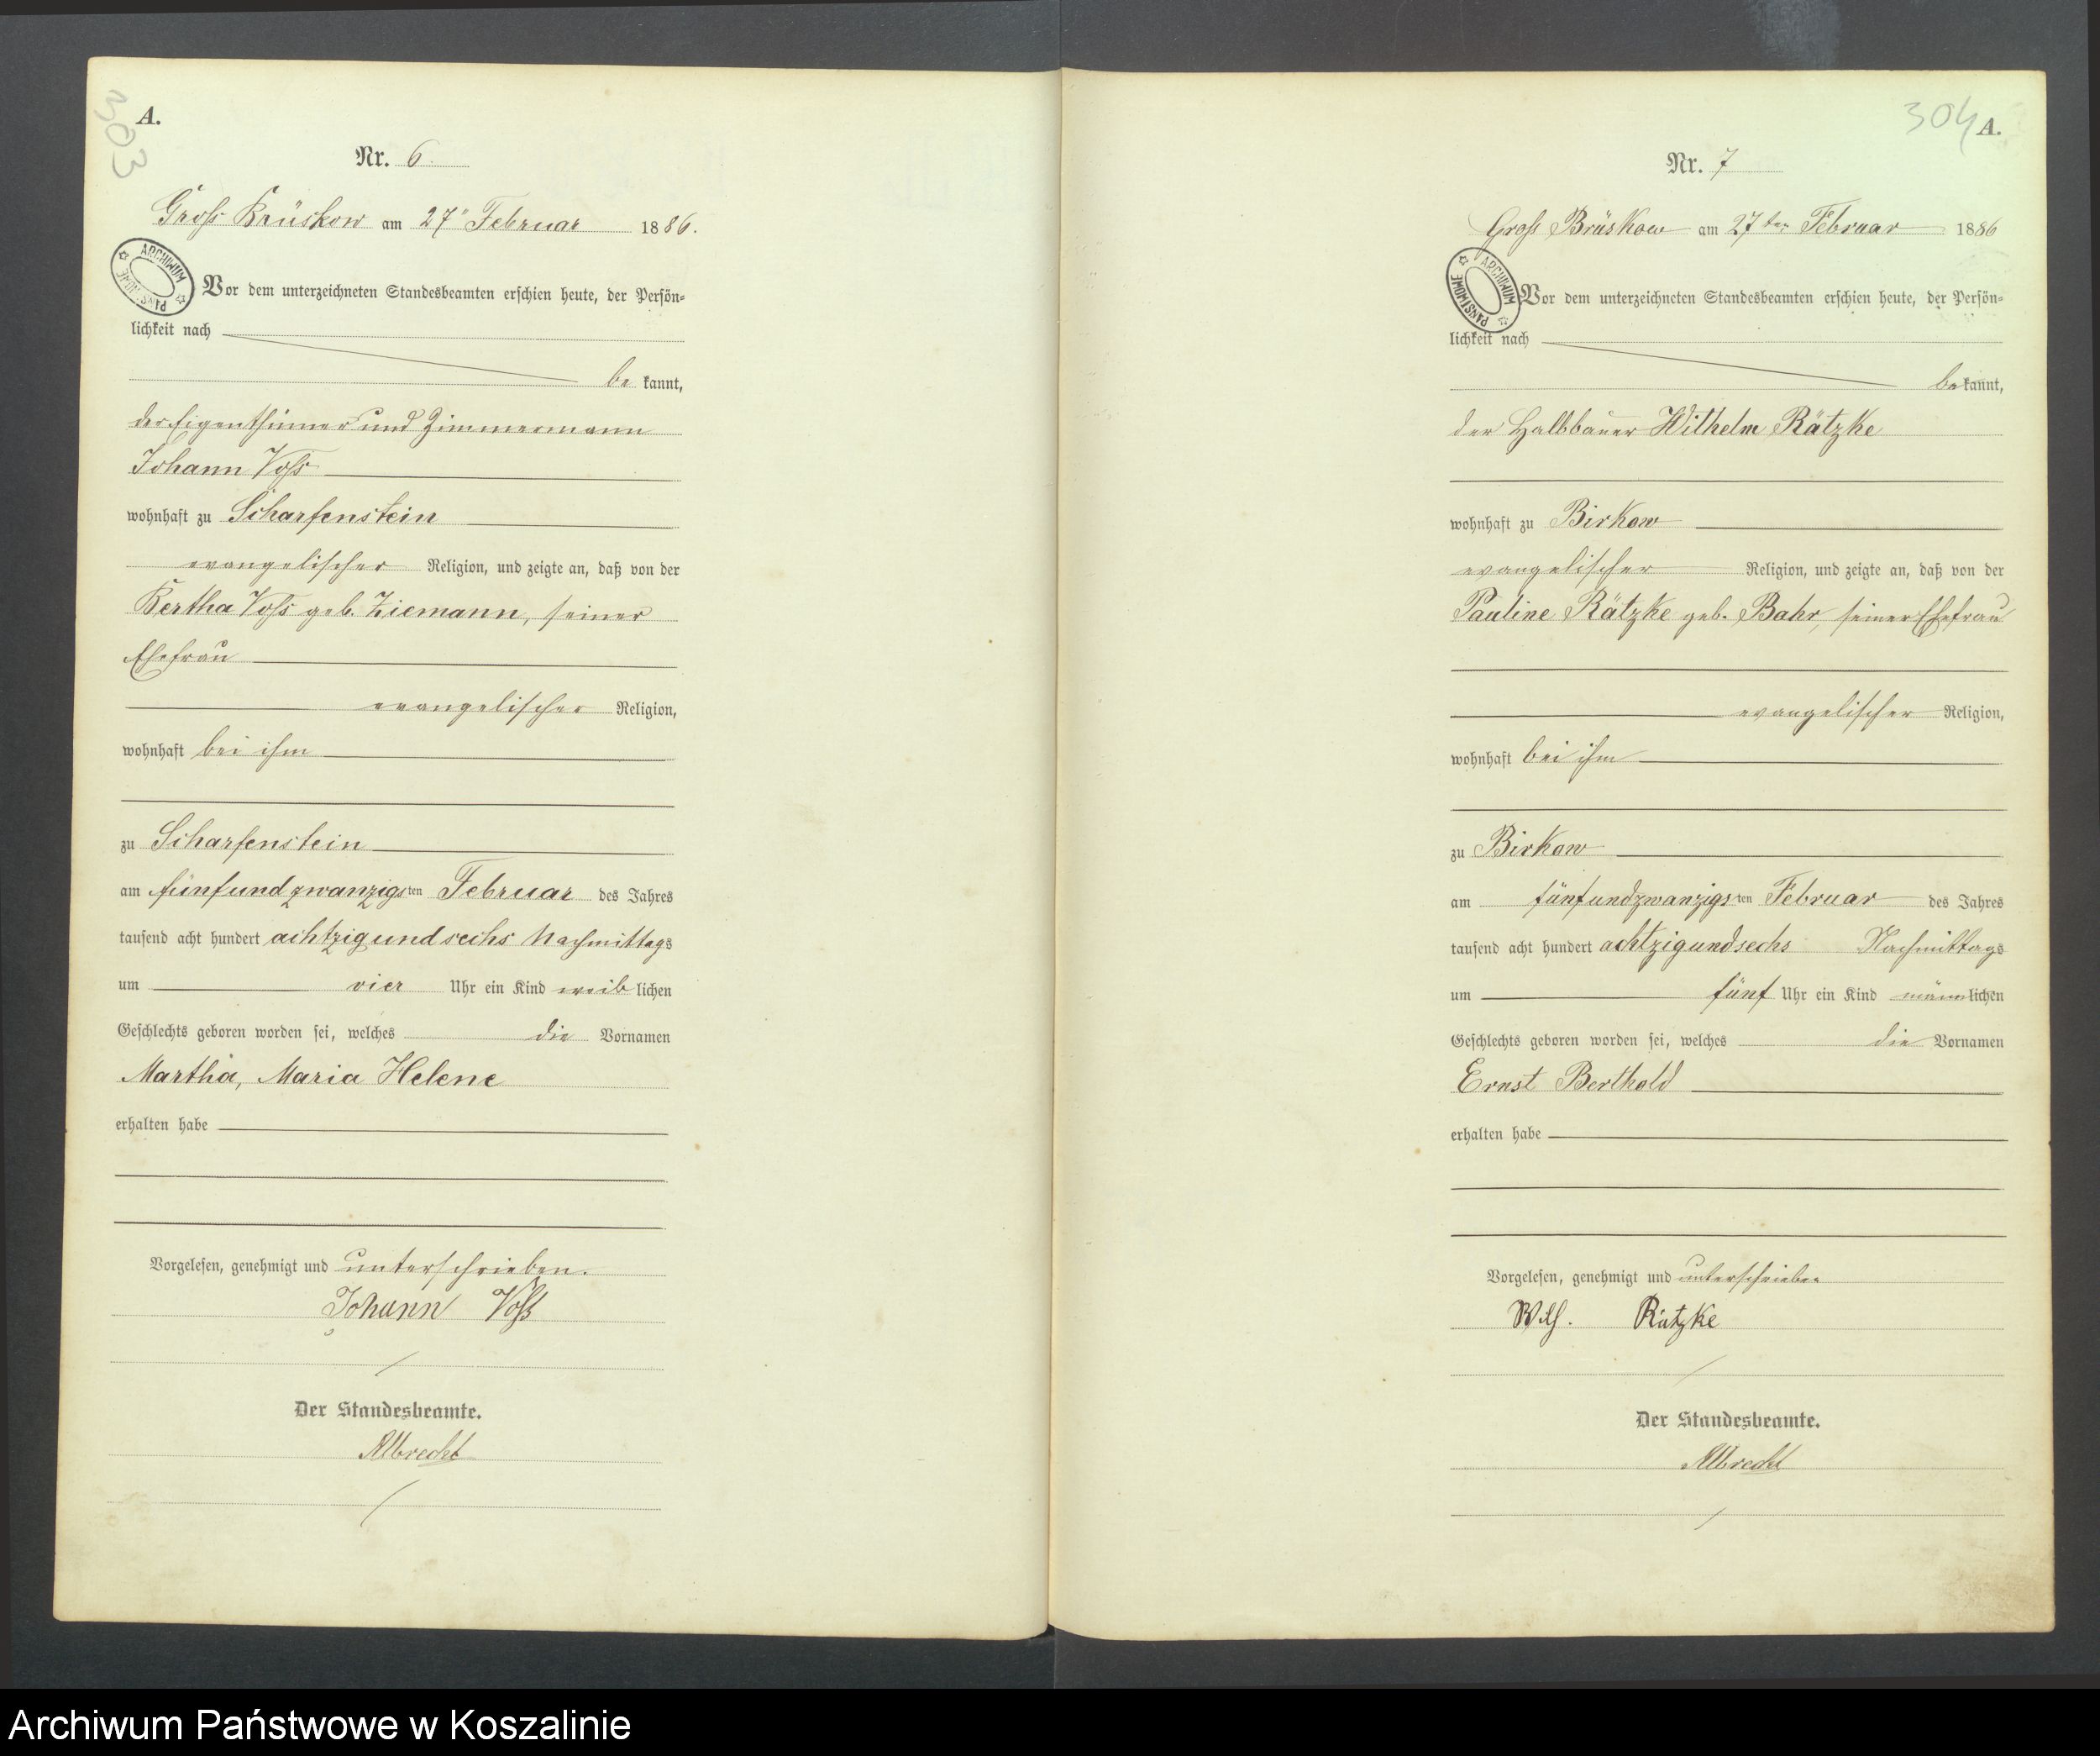 303
A.
Nr. 6.
Groß Brüskow am 27" Februar 1886.
ARCHIWUM PAŃSTWOWE
Vor dem unterzeichneten Standesbeamten erschien heute, der Persön=
lichkeit nach
be kannt,
der Eigenthümer und Zimmermann
Johann Voss
wohnhaft zu Scharfenstein
evangelischer Religion, und zeigte an, daß von der
Bertha Voss geb. Ziemann, seiner
Ehefrau
evangelischer Religion,
wohnhaft bei ihm
zu Scharfenstein
am fünfundzwanzigsten Februar des Jahres
tausend acht hundert achtzigundsechs Nachmittags
um vier Uhr ein Kind weiblichen
Geschlechts geboren worden sei, welches die Vornamen
Martha, Maria Helene
erhalten habe
Vorgelesen, genehmigt und unterschrieben.
Johann Voß
Der Standesbeamte.
Albrecht
304
A.
Nr. 7
Gross Brüskow am 27ten Februar 1886
ARCHIWUM PAŃSTWOWE
Vor dem unterzeichneten Standesbeamten erschien heute, der Persön=
lichkeit nach
bekannt,
der Halbbauer Wilhelm Rätzke
wohnhaft zu Birkow
evangelischer Religion, und zeigte an, daß von der
Pauline Rätzke geb. Bahr, seiner Ehefrau
evangelischer Religion,
wohnhaft bei ihm
zu Birkow
am fünfundzwanzigsten Februar des Jahres
tausend acht hundert achtzigundsechs Nachmittags
um fünf Uhr ein Kind männlichen
Geschlechts geboren worden sei, welches die Vornamen
Ernst Berthold
erhalten habe
Vorgelesen, genehmigt und unterschrieben
Wilh. Rätzke
Der Standesbeamte.
Albrecht
Archiwum Państwowe w Koszalinie